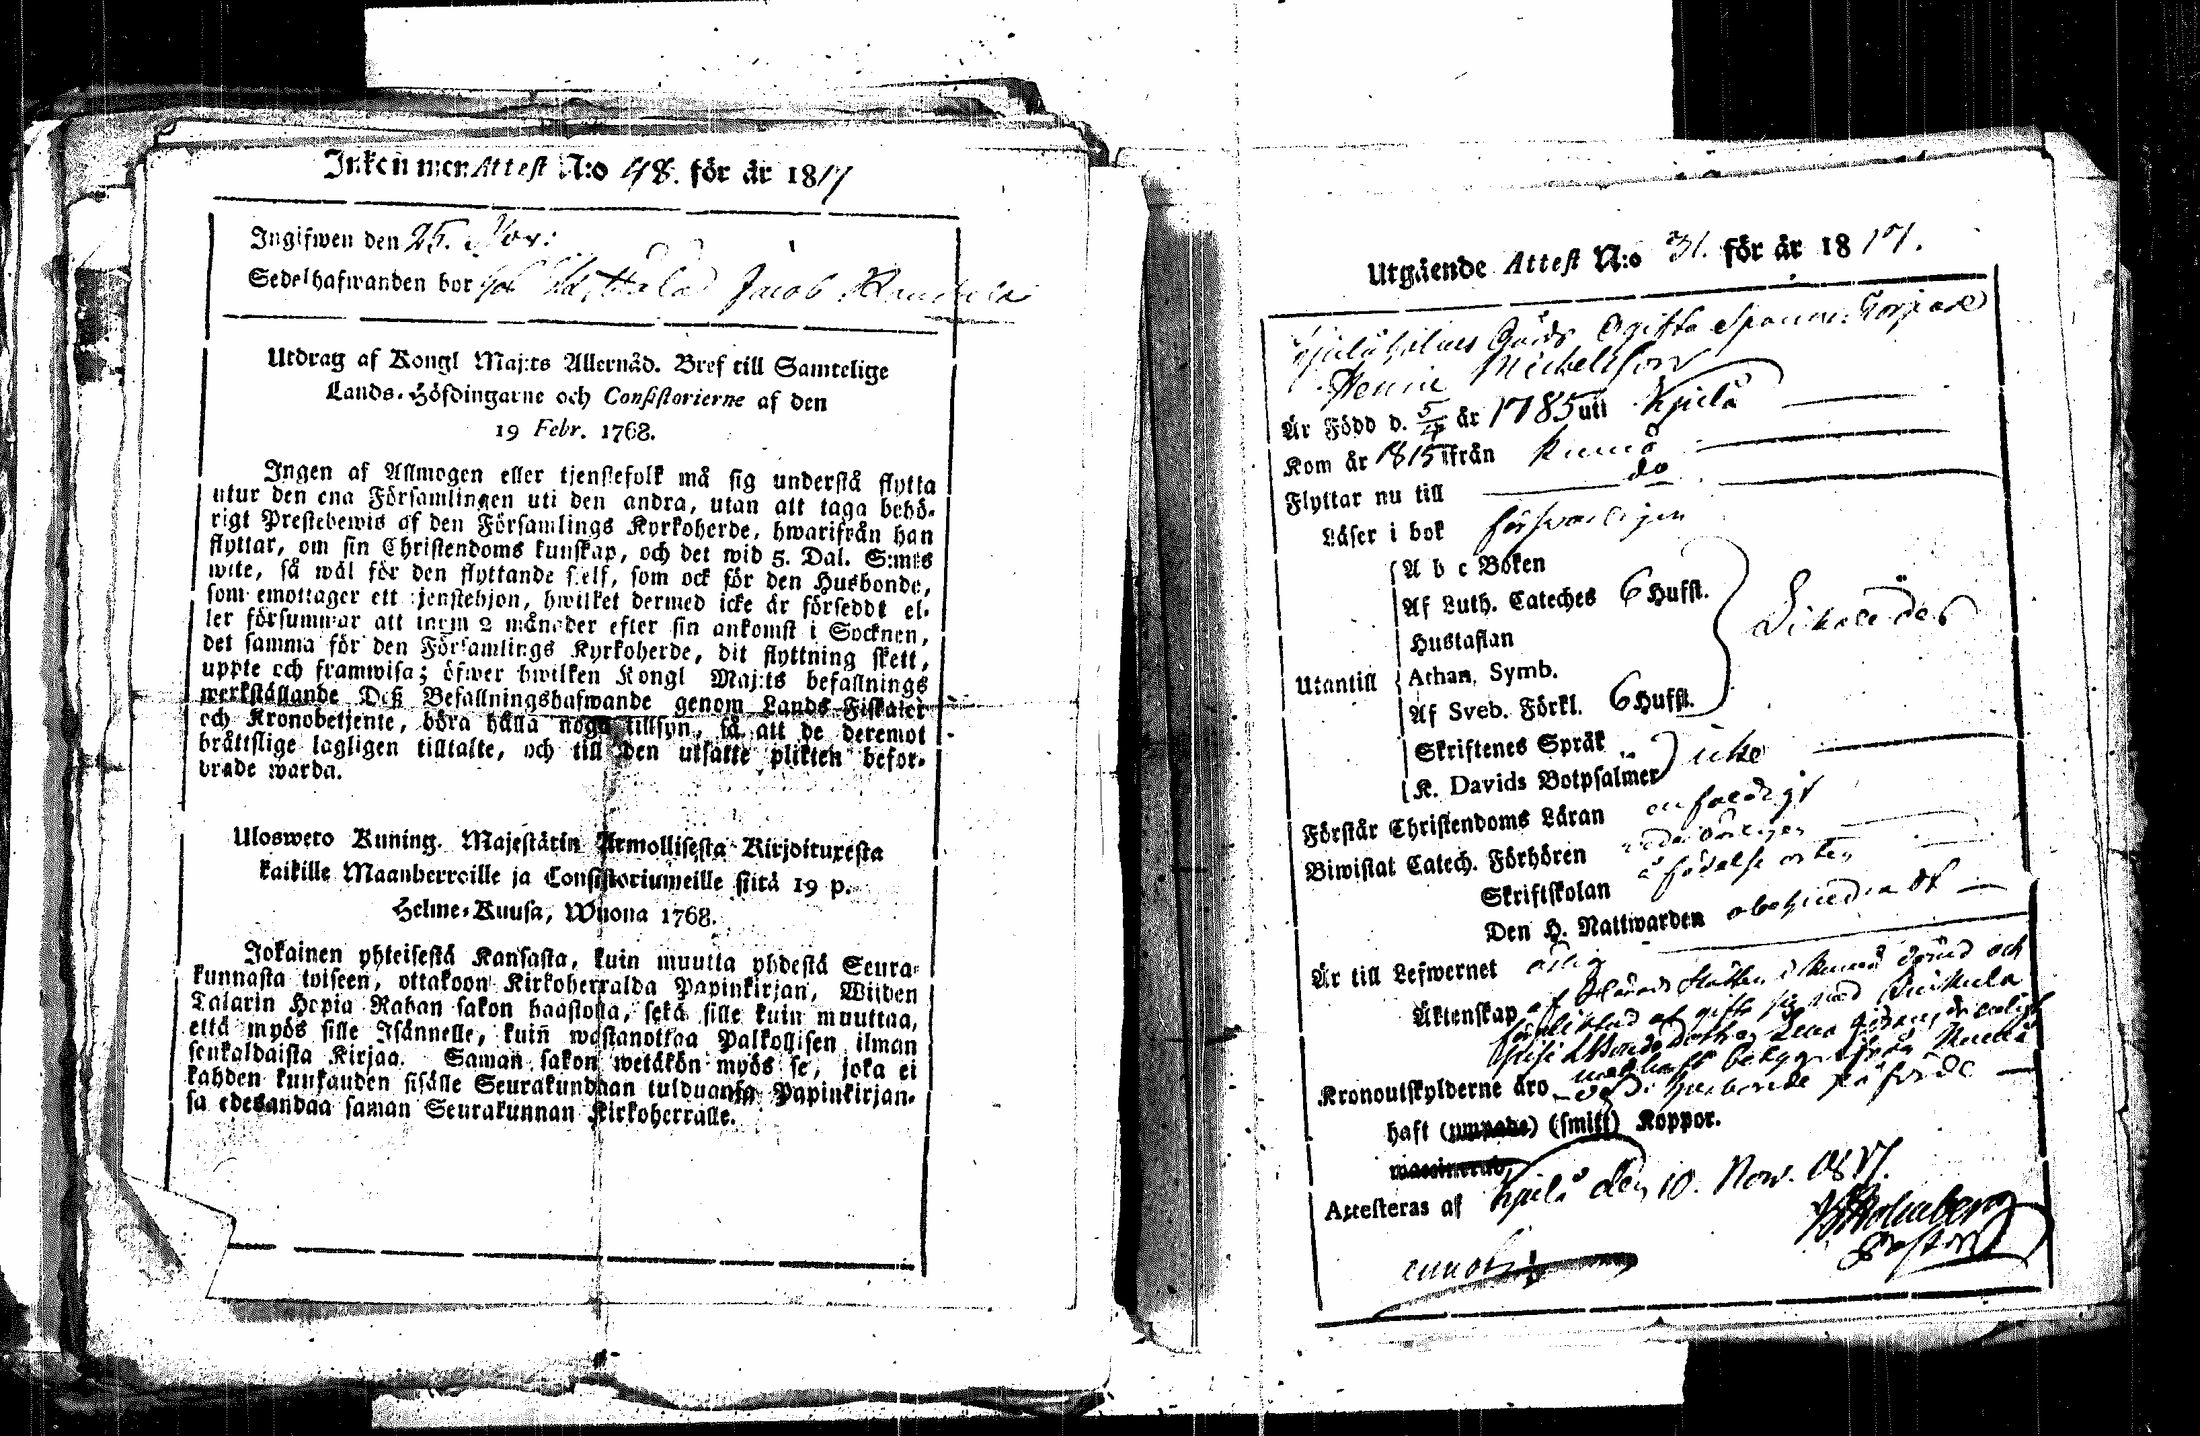 Inkommen Attest N:o 48. för år 1817
Ingifwen den 25. Nov:
Sedelhafwanden bor hos Jacob
Utdrag af Kongl Maj:ts Allernåd. Bref till Samtelige
Lands-Höfdingarne och Consistorierne af den
19 Febr. 1768.
Ingen af Allmogen eller tjenstefolk må sig understå flytta
utur den ena Församlingen uti den andra, utan att taga behö-
rigt Prestebewis af den Församlings Kyrkoherde, hwarifrån han
flyttar, om sin Christendoms kunskap, och det wid 5. Dal. S:mts
wite, så wäl för den flyttande sielf, som ock för den Husbonde,
som emottager ett tjenstehjon, hwilket dermed icke är förseddt el-
ler försummar att inom 2 månader efter sin ankomst i Socknen,
det samma för den Församlings Kyrkoherde, dit flyttning skett,
uppte och framwisa; öfwer hwilken Kongl Maj:ts befallnings
werkställande Deß Befallningshafwande genom Lands-Fiskaler
och Kronobetjente, böra hålla noga tillsyn, så att de deremot
bråttslige lagligen tilltalte, och till den utsatte plikten befor-
drade warda.
Ulosweto Kuning. Majestätin Armollisesta Kirjoituxesta
kaikille Maanherroille ja Consistoriumeille siitä 19 p.
Helme-Kuusa, Wuona 1768.
Jokainen yhteisestä Kansasta, kuin muutta yhdestä Seura-
kunnasta toiseen, ottakoon Kirkoherralda Papinkirjan, Wijden
Talarin Hopia Rahan sakon haastolla, sekä sille kuin muuttaa,
että myös sille Isännelle, kuin wastanottaa Palkollisen ilman
senkaldaista Kirjaa. Saman sakon wetäkön myös se, joka ei
kahden kuukauden sisälle Seurakundhan tulduansa Papinkirjan-
sa edesandaa saman Seurakunnan Kirkoherralle.
Utgående Attest N:o 31. för år 1817.
Gårds Ogifta Torpare
Henric Michellsson
Är Född d. 5/4 år 1785 uti Kjulå
Kom år 1815 ifrån Kumo
Flyttar nu till do
Läser i bok försvarligen
Utantill
A b c Boken
Af Luth. Cateches 6 Hufst.
Hustaflan
Athan. Symb.
Af Sveb. Förkl. 6 Hufst.
Likaledes
Skriftenes Språk
K. Davids Botpsalmer
icke
Förstår Christendoms Läran enfaldigt
Biwistat Catech. Förhören vederbörligen
Skriftskolan å födelse orten
Den H. Nattwarden obehindradt
Är till Lefwernet ärlig
Äktenskap af Härads Rätten i Kumo dömd och
at gifta sig med
Lena
Kronoutskylderne äro
haft (ympade) (smitt) Koppor.
Attesteras af Kjulå den 10. Nov. 1817.
Holmberg
Pastor